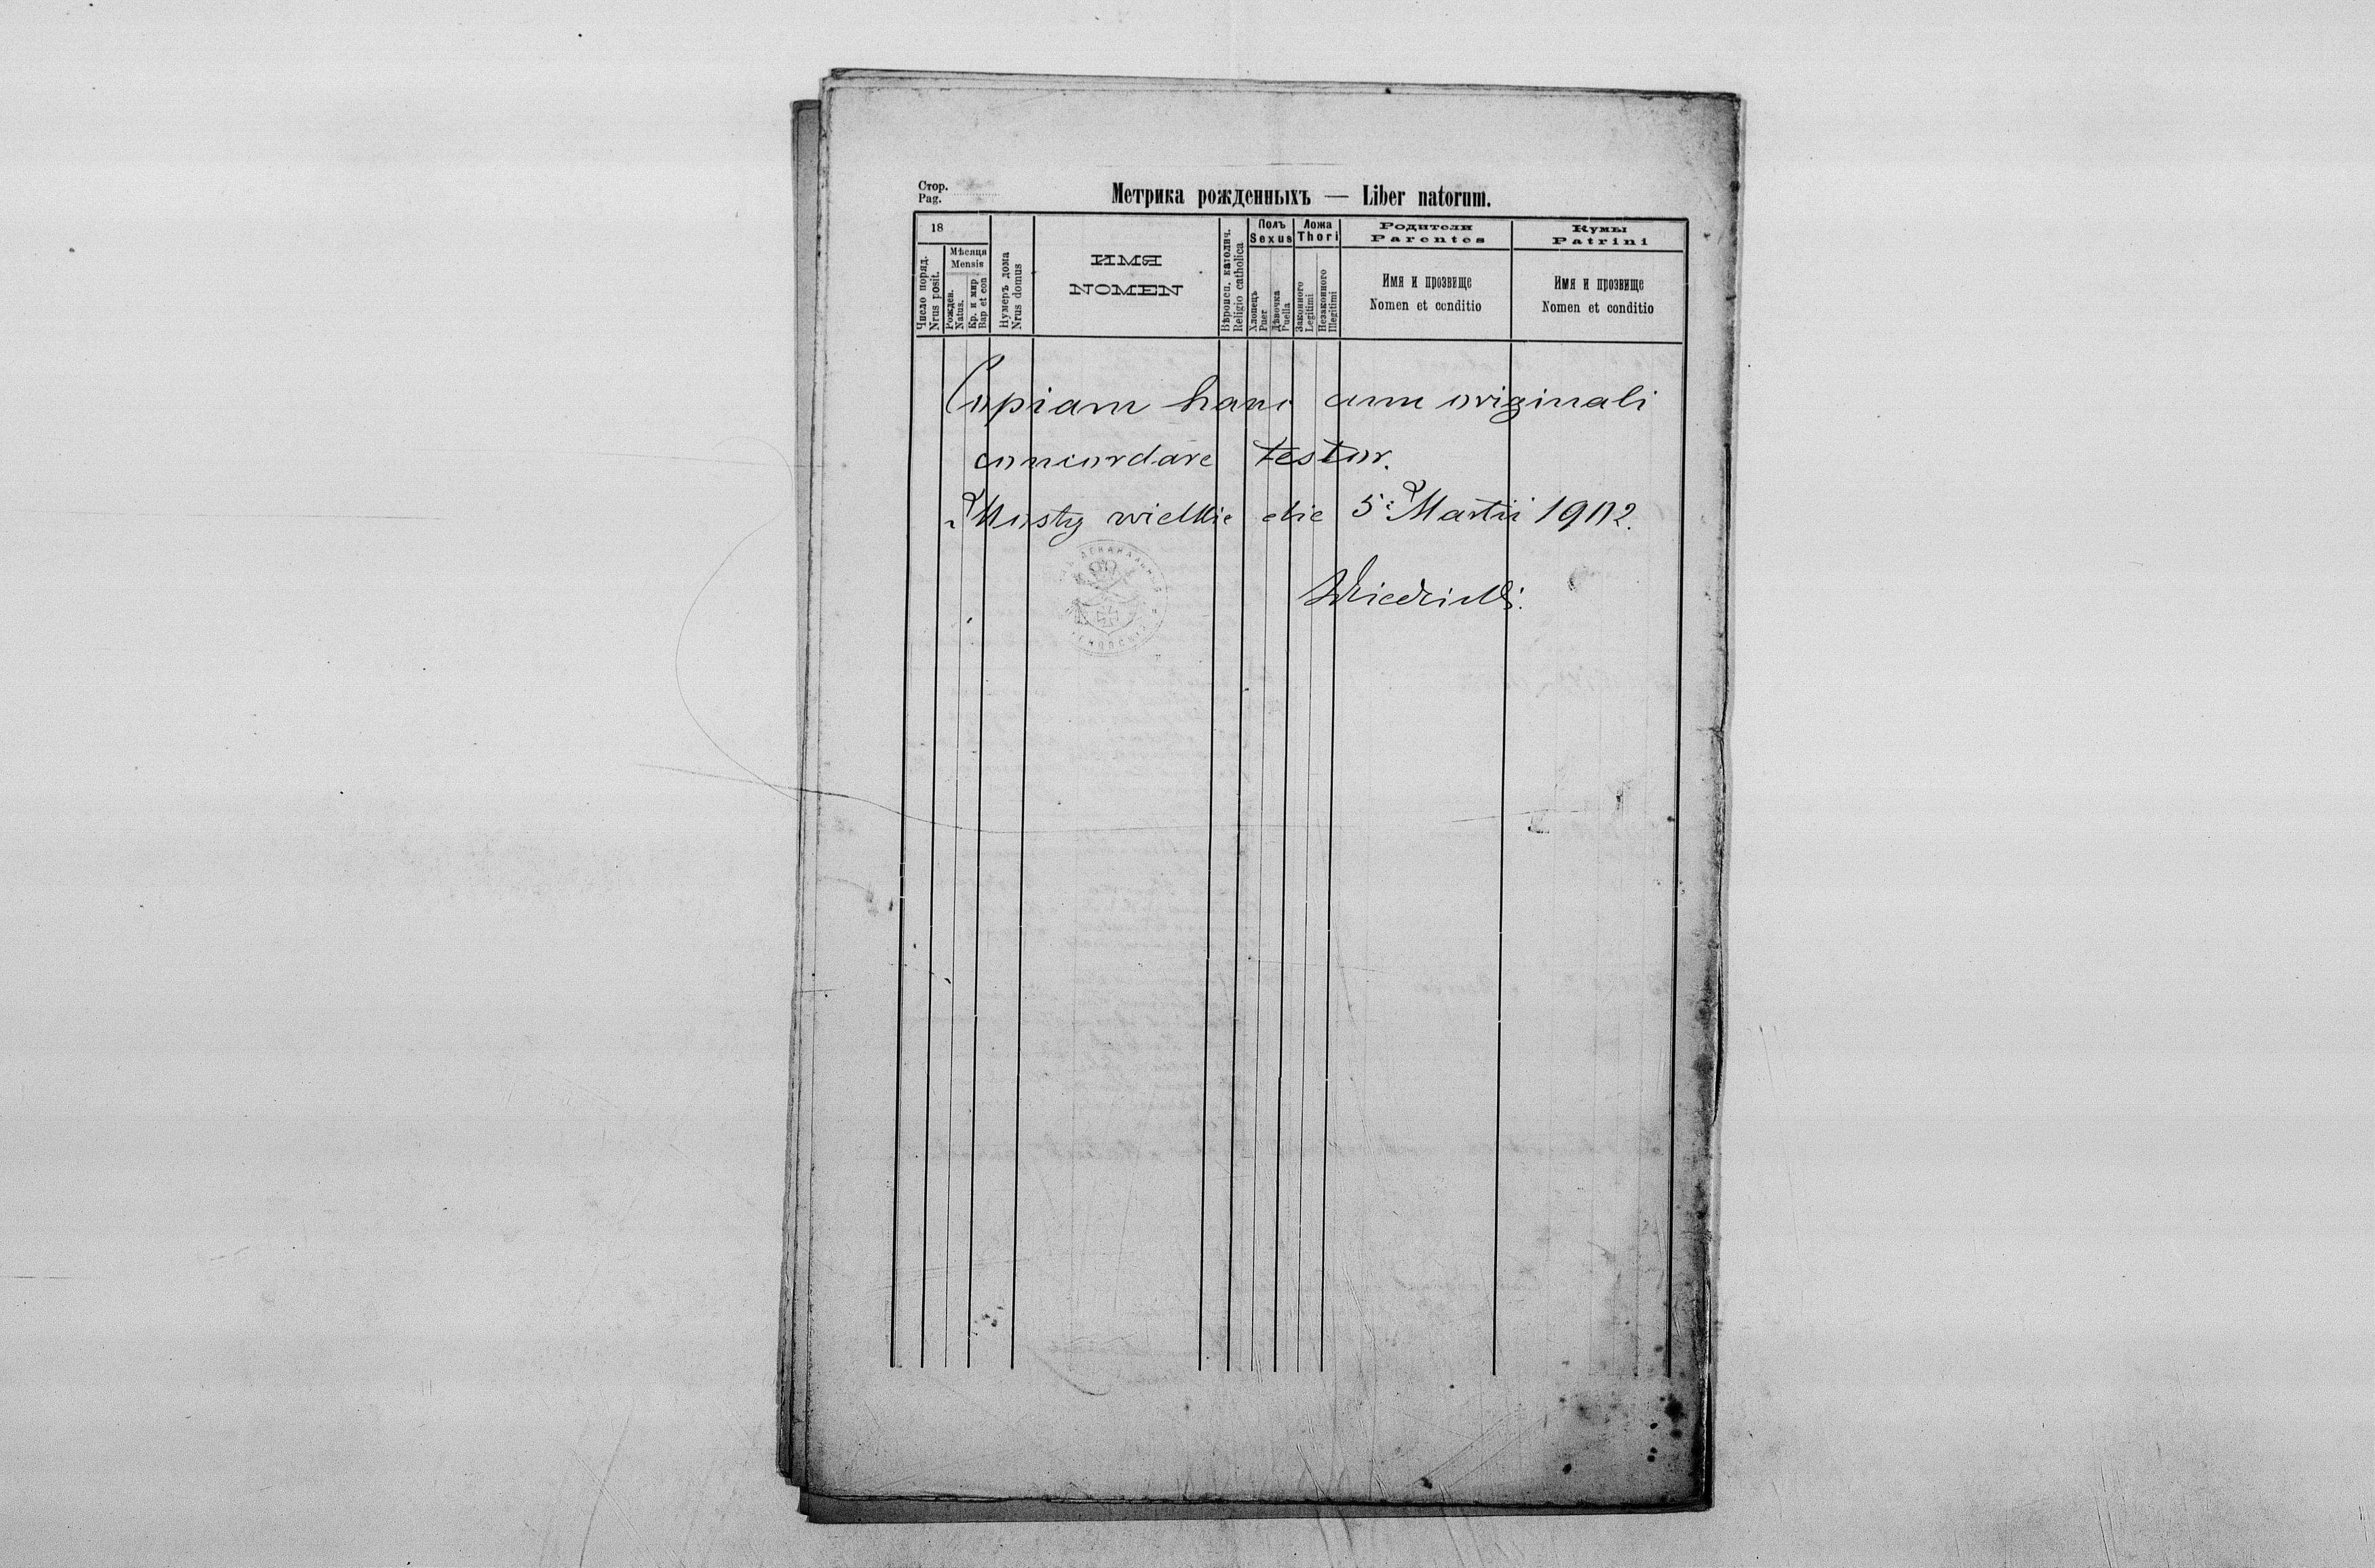 Стор.
Pag.
Метрика рожденныхъ — Liber natorum.
18
Число поряд.
Nrus posit.
Мѣсяця
Mensis
Рожден.
Natus.
Кр. и мир
Bap et con
Нумеръ дома
Nrus domus
ИМЯ
NOMEN
Вѣроисп. католич.
Religio catholica
Полъ
Sexus
Хлопець
Puer
Дѣвочка
Puella
Ложа
Thori
Законного
Legitimi
Незаконного
Illegitimi
Родители
Parentes
Имя и прозвище
Nomen et conditio
Кумы
Patrini
Имя и прозвище
Nomen et conditio
Copiam hanc cum originali
concordare testor.
Mosty wielkie die 5. Martii 1902.